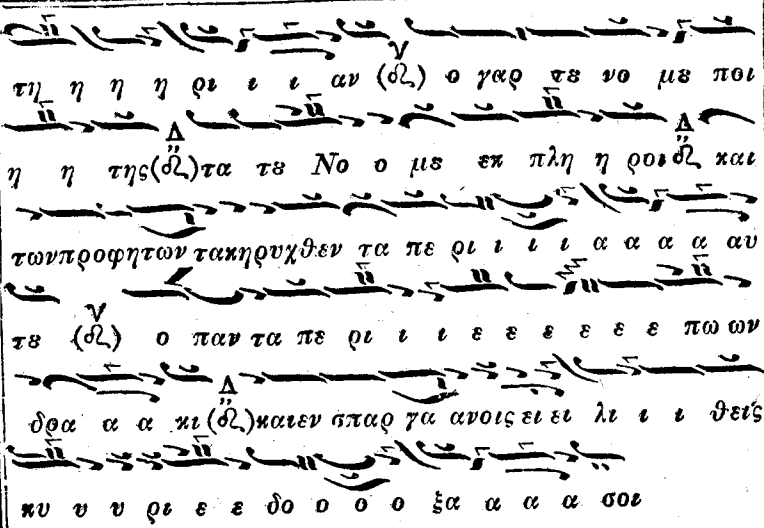 τη η η η ρι ι ι αν ο γαρ τȣ νο μȣ ποι
η η της τα τȣ Νο ο μȣ εκ πλη η ροι και
των προφητων τα κηρυχθεν τα πε ρι ι ι ι α α α α αυ
τȣ ο παν τα πε ρι ι ι ε ε ε ε ε ε ε πω ων
δρα α α κι και εν σπαρ γα ανοις ει ει λι ι ι θεις
κυ υ υ ρι ε ε δο ο ο ο ξα α α α σοι